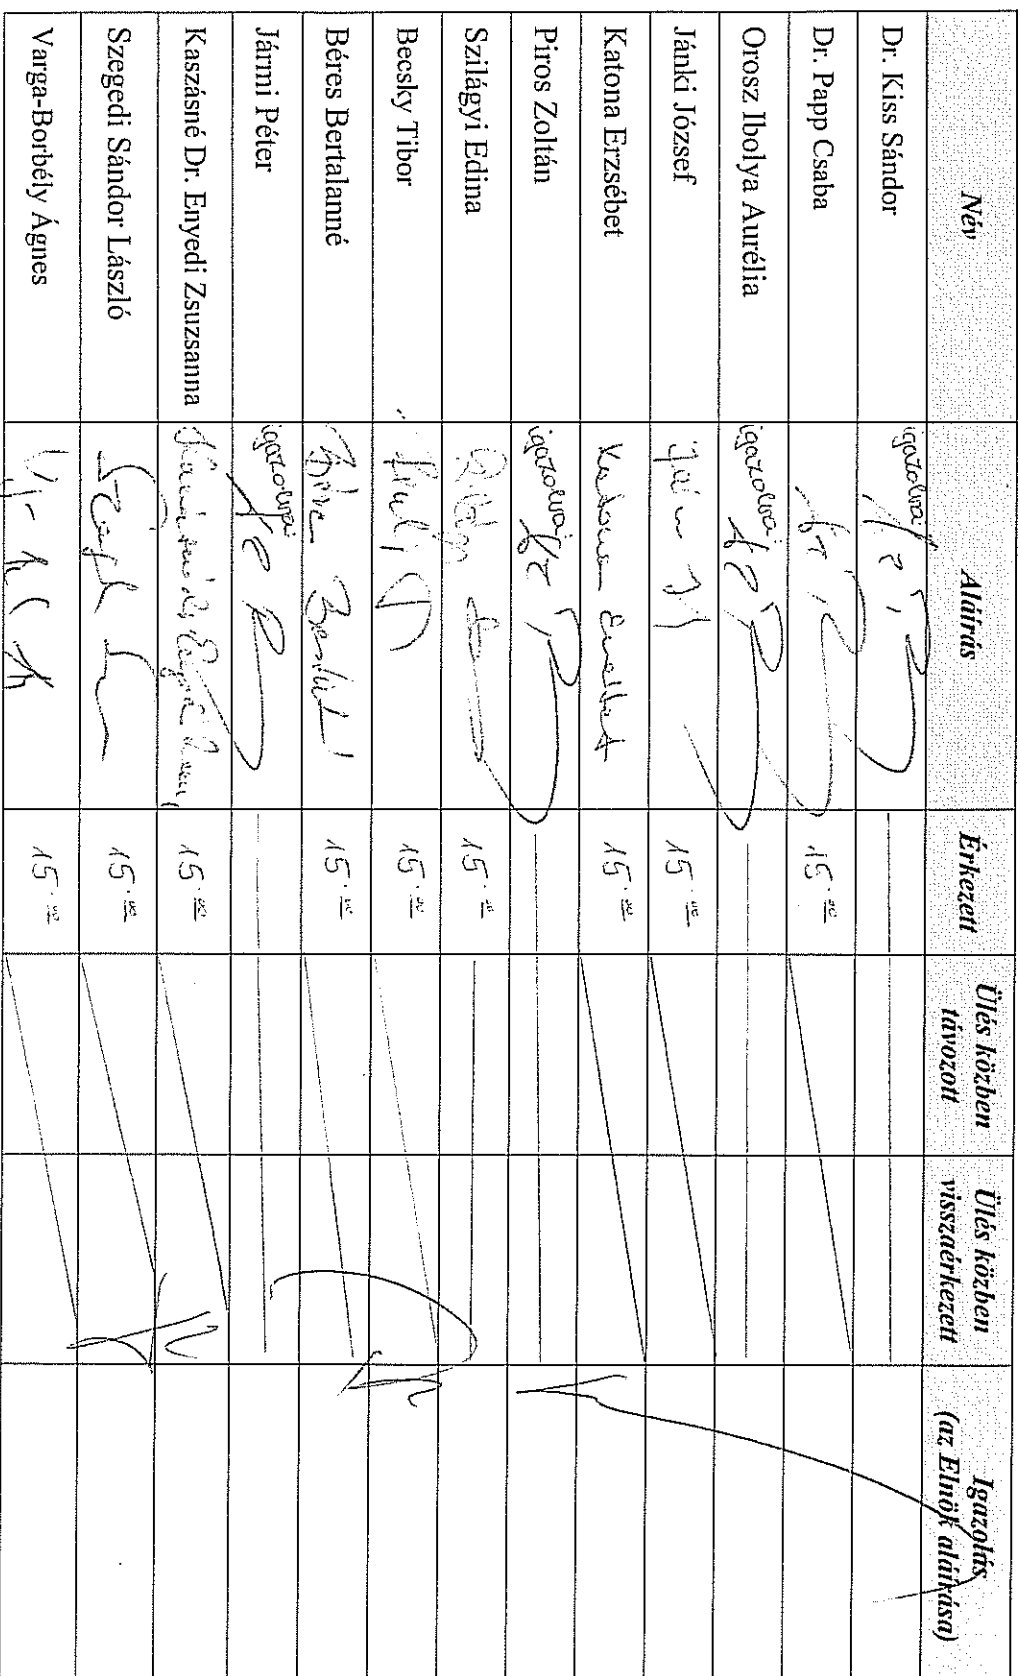 Név Aláírás Érkezett Ülés közben távozott Ülés közben visszaérkezett Igazolás (az Elnök aláírása)
Dr. Kiss Sándor igazolva:
Dr. Papp Csaba 15.00
Orosz Ibolya Aurélia igazolva:
Jánki József 15.00
Katona Erzsébet Katona Erzsébet 15.00
Piros Zoltán igazolva:
Szilágyi Edina 15.00
Becsky Tibor 15.00
Béres Bertalanné 15.00
Jármi Péter igazolva:
Kaszásné Dr. Enyedi Zsuzsanna 15.00
Szegedi Sándor László 15.00
Varga-Borbély Ágnes 15.00